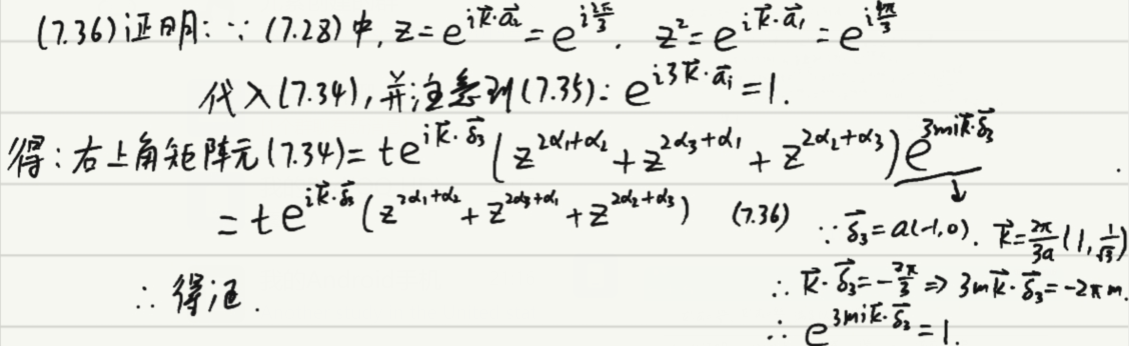 (7.36)证明:∵(7.28)中, z=e^{i\vec{k}·\vec{a}_2}=e^{i\frac{2π}{3}}. z²=e^{i\vec{k}·\vec{a}_1}=e^{i\frac{4π}{3}}
代入(7.34),并注意到(7.35): e^{i3\vec{k}·\vec{a}_i}=1.
得:右上角矩阵元(7.34)=te^{i\vec{k}·\vec{δ}_3}(z^{2α_1+α_2}+z^{2α_3+α_1}+z^{2α_2+α_3})e^{3mi\vec{k}·\vec{δ}_3}
=te^{i\vec{k}·\vec{δ}_3}(z^{2α_1+α_2}+z^{2α_3+α_1}+z^{2α_2+α_3}) (7.36)
∵\vec{δ}_3=a(-1,0). \vec{k}=\frac{2π}{3a}(1,\frac{1}{\sqrt{3}})
∴\vec{k}·\vec{δ}_3=-\frac{2π}{3}⇒3m\vec{k}·\vec{δ}_3=-2πm.
∴e^{3mi\vec{k}·\vec{δ}_3}=1.
∴得证.